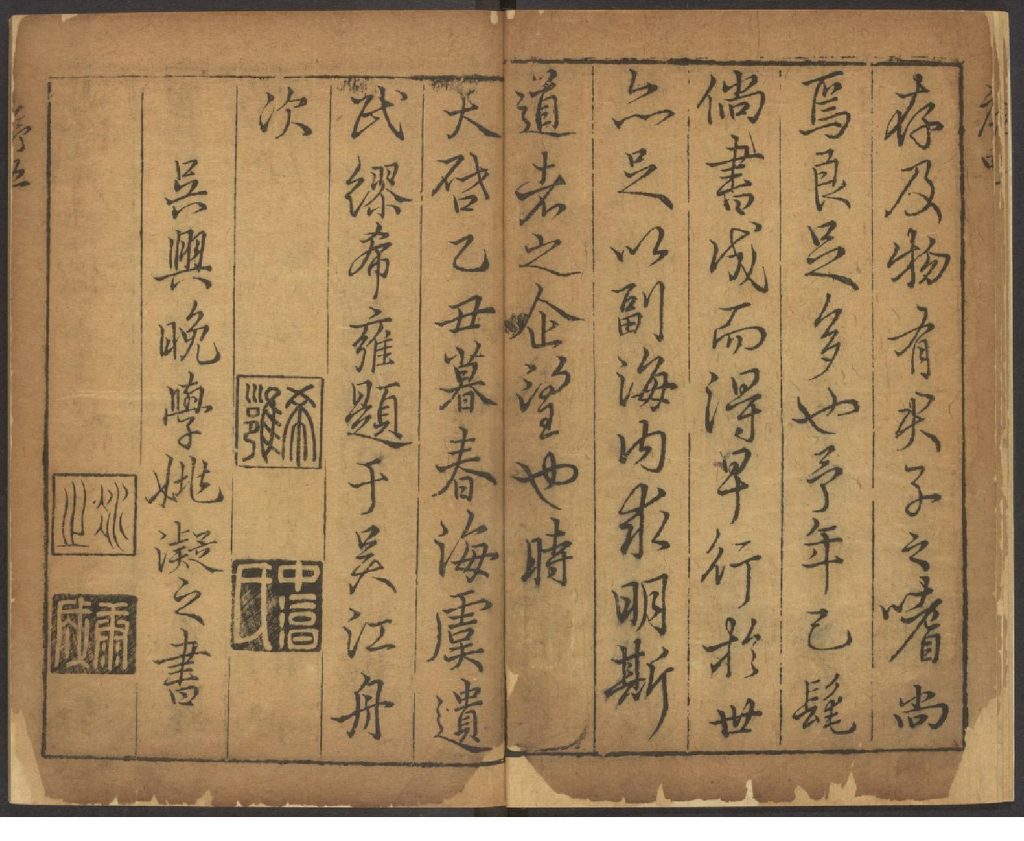 存及物有夫子之嗜尚
焉良足多也予年已髦
倘書成而得早行於世
亦足以副海内求明斯
道者之企望也時
天启乙丑暮春海虞遺
民繆希雍題于吴江舟
次
希雍
吳興晚學姚凝之書